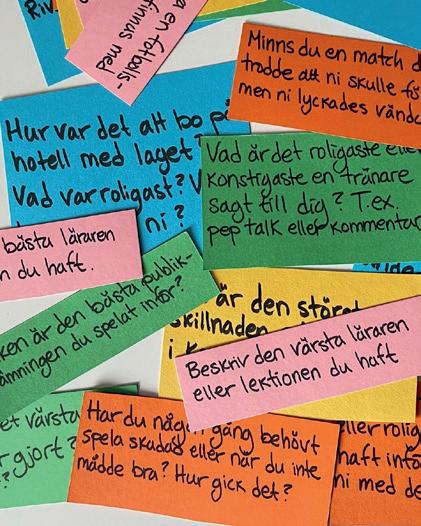 Riv
en fotbolls-
finnus med
Minns du en match d
trodde att ni skulle fö
men ni lyckades vända
Hur var det att bo på
hotell med laget?
Vad var roligast? V
ni?
Vad är det roligaste eller
konstigaste en tränare
sagt till dig? T.ex.
pep talk eller kommentar
bästa läraren
n du haft.
ken är den bästa publik-
ämningen du spelat inför?
är den störst
skillnaden
i k
Beskriv den värsta läraren
eller lektionen du haft
et värsta
r gjort?
?
Har du någon gång behövt
spela skadad eller när du inte
mådde bra? Hur gick det?
eller rolig
haft info
ni med de